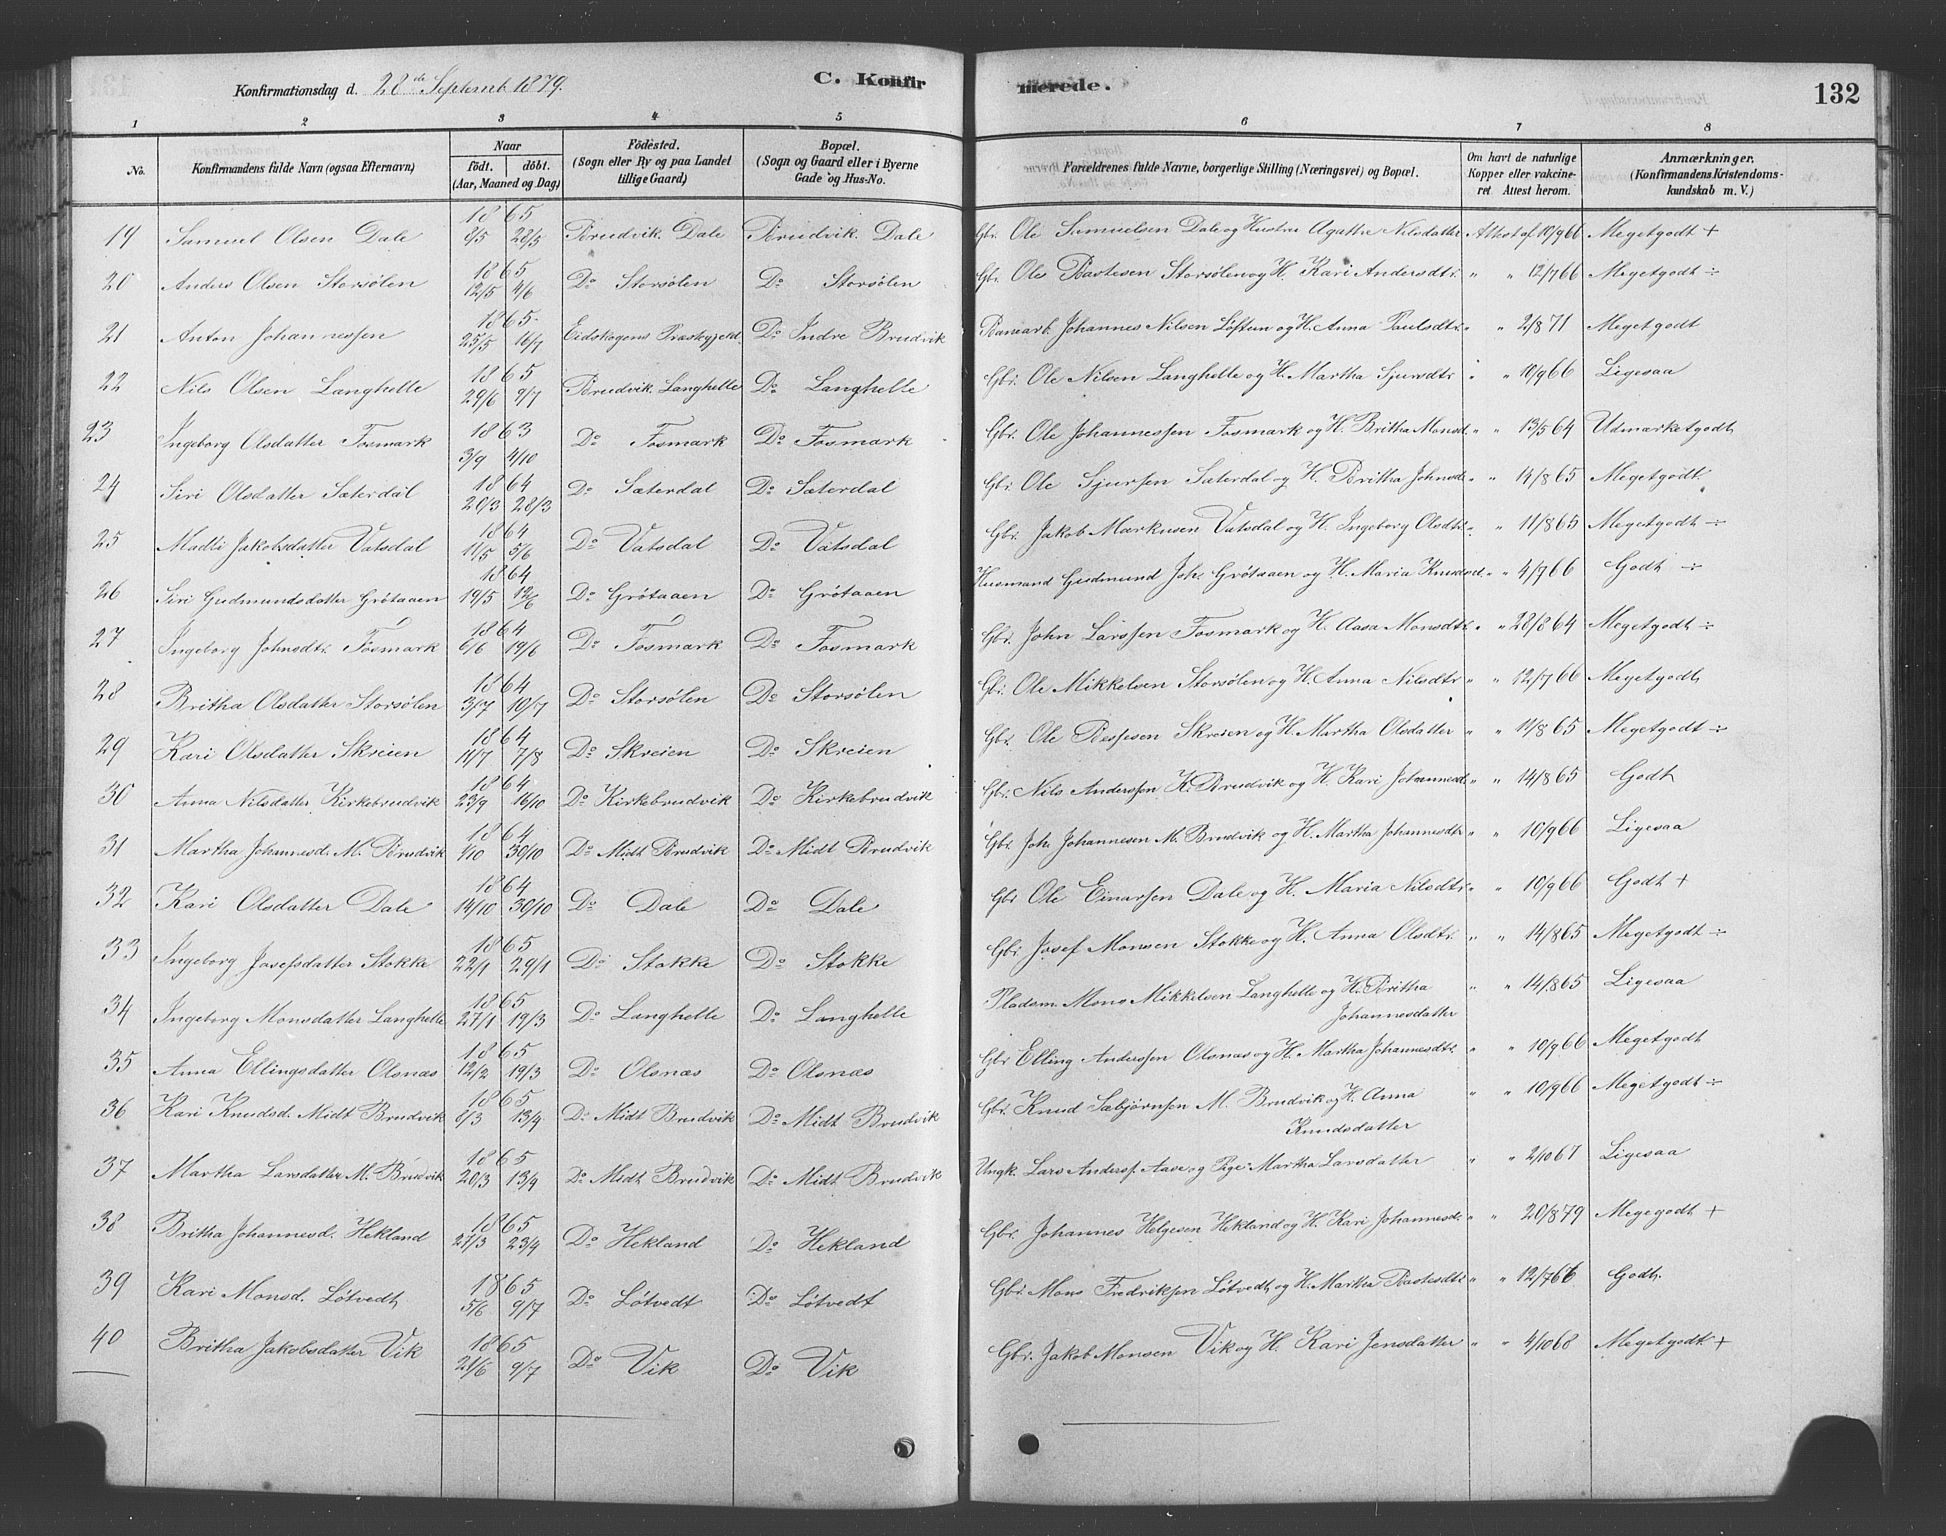 C. Konfirmerede.
132
Konfirmationsdag d. 28de Septemb 1879.
1 2 3 4 5 6 7 8
No. Konfirmandens fulde Navn (ogsaa Efternavn) Naar födt. döbt. (Aar, Maaned og Dag) Födested. (Sogn eller By og paa Landet tillige Gaard) Bopæl. (Sogn og Gaard eller i Byerne Gade og Hus-No. Forældrenes fulde Navne, borgerlige Stilling (Næringsvei) og Bopæl. Om havt de naturlige Kopper eller vakcineret. Attest herom. Anmærkninger. (Konfirmandens Kristendomskundskab m. V.)
19 Samuel Olsen Dale 1865 8/5 28/5 Brudvik. Dale Brudvik. Dale Gbr. Ole Samuelsen Dale og Hustru Agathe Nilsdatter Attest af 10/9 66 Megetgodt +
20 Anders Olsen Storsølen 1865 12/5 4/6 Do Storsölen Do Storsölen Gbr. Ole Bastesen Storsölen og H. Kari Andersdtr. " " 12/7 66 Megetgodt ÷
21 Anton Johannessen 1865 25/5 16/7 Eidskogens Præstegjeld Do Indre Brudvik Banearb. Johannes Nilsen Löftum og H. Anna Paulsdtr. " " 2/8 71 Megetgodt
22 Nils Olsen Langhelle 1865 29/6 9/7 Brudvik. Langhelle Do Langhelle Gbr. Ole Nilsen Langhelle og H. Martha Sjursdtr " " 10/9 66 Ligesaa
23 Ingeborg Olsdatter Fosmark 1863 3/9 4/10 Do Fosmark Do Fosmark Gbr. Ole Johannessen Fosmark og H. Britha Monsd. " " 13/5 64 Udmarketgodt
24 Siri Olsdatter Sæterdal 1864 20/3 28/3 Do Sæterdal Do Sæterdal Gbr. Ole Sjursen Sæterdal og H. Britha Johnsdr " " 14/8 65 Megetgodt.
25 Madli Jakobsdatter Vatsdal 1864 11/5 5/6 Do Vatsdal Do Vatsdal Gbr. Jakob Markusen Vatsdal og H. Ingeborg Olsdtr. " " 11/8 65 Megetgodt ÷
26 Siri Gudmundsdatter Grötaaen 1864 19/5 12/6 Do Grötaaen Do Grötaaen Husmand Gudmund Joh. Grötaaen og H. Maria Knudsd. " " 4/7 66 Godt ÷
27 Ingeborg Johnsdtr. Fosmark 1864 6/6 19/6 Do Fosmark Do Fosmark Gbr. John Larssen Fosmark og H. Aasa Monsdtr. " " 28/8 64 Megetgodt ÷
28 Britha Olsdatter Storsölen 1864 3/7 10/7 Do Storsölen Do Storsölen Gbr. Ole Mikkelsen Storsölen og H. Anna Nilsdtr " " 12/7 66 Megetgodt
29 Kari Olsdatter Skreien 1864 14/7 7/8 Do Skreien Do Skreien Gbr. Ole Skreien og H. Martha Olsdatter " " 11/8 65 Megetgodt ÷
30 Anna Nilsdatter Kirkebrudvik 1864 23/9 16/10 Do Kirkebrudvik Do Kirkebrudvik Gbr. Nils Anderssen K. Brudvik og H. Kari Johannesdr " " 14/8 65 Godt
31 Martha Johannesd. M. Brudvik 1864 1/10 30/10 Do Midt Brudvik Do Midt Brudvik Gbr. Joh. Johannesen M. Brudvik og H. Martha Johannesdtr " " 10/9 66 Ligesaa
32 Kari Olsdatter Dale 1864 14/10 30/10 Do Dale Do Dale Gbr. Ole Einarssen Dale og H. Maria Nilsdtr " " 10/9 66 Godt +
33 Ingeborg Josefsdatter Stokke 1865 22/1 29/1 Do Stokke Do Stokke Gbr. Josef Monsen Stokke og H. Anna Olsdtr. " " 14/8 65 Megetgodt ÷
34 Ingeborg Monsdatter Langhelle 1865 27/1 19/3 Do Langhelle Do Langhelle Pladsm. Mons Mikkelsen Langhelle og H. Britha Johannesdatter " " 14/8 65 Ligesaa
35 Anna Ellingsdatter Olsnæs 1865 12/2 19/3 Do Olsnæs Do Olsnæs Gbr Elling Anderssen Olsnæs og H. Martha Johannesdtr. " " 10/9 66 Megetgodt
36 Kari Knudsd. Midt Brudvik 1865 8/3 13/4 Do Midt Brudvik Do Midt Brudvik Gbr. Knud Sæbjörnsen M. Brudvik og H. Anna Knudsdatter " " 10/9 66 Megetgodt ÷
37 Martha Larsdatter M. Brudvik 1865 20/3 13/4 Do Midt Brudvik Do Midt Brudvik Ungk. Lars Anderss. Aase og Pige Martha Larsdatter " " 2/10 67 Ligesaa
38 Britha Johannesd. Hekland 1865 27/3 23/4 Do Hekland Do Hekland Gbr. Johannes Helgesen Hekland og H. Kari Johannesdr " " 20/8 79 Megegodt +
39 Kari Monsd. Lötvedt 1865 5/6 9/7 Do Lötvedt Do Lötvedt Gbr. Mons Fredriksen Lötvedt og H. Martha Bastesdtr " " 12/7 66 Godt.
40 Britha Jakobsdatter Vik 1865 21/6 9/7 Do Vik Do Vik Gbr. Jakob Monsen Vik og H. Kari Jensdatter " " 4/10 68 Megetgodt +